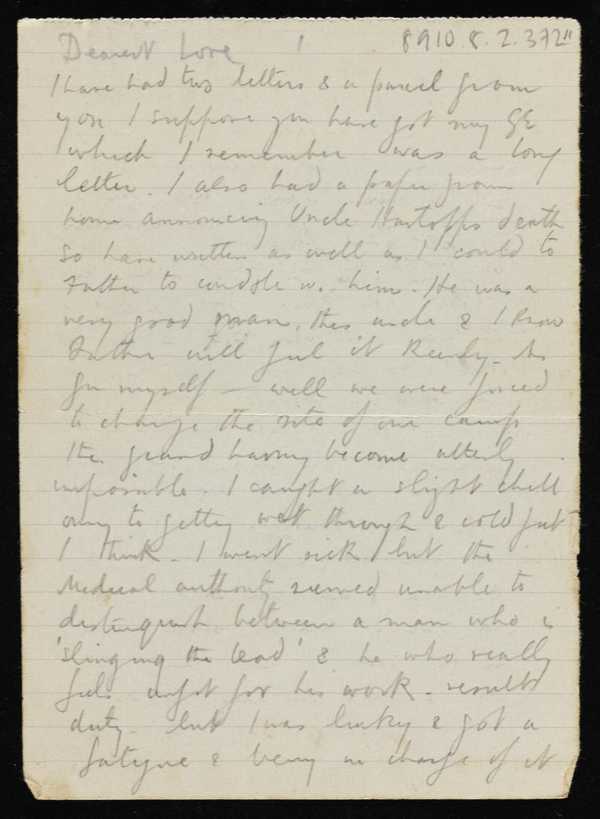 Dearest Love 1 8910.8.2.372"
I have had two letters & a parcel from
you I suppose you have got my GE
which I remember was a long
letter. I also had a paper from
home announcing Uncle Hartopps death
so have written as well as I could to
Father to condole w. him. He was a
very good man, this uncle & I know
Father will feel it keenly. As
for myself - well we were forced
to change the site of our camp
the ground having become utterly
impossible. I caught a slight chill
owing to getting wet through & cold feet
I think. I went sick but the
Medical authority seemed unable to
distinguish between a man who is
'slinging the lead' & he who really
feels unfit for his work - result
duty. but I was lucky & got a
fatigue & being in charge of it